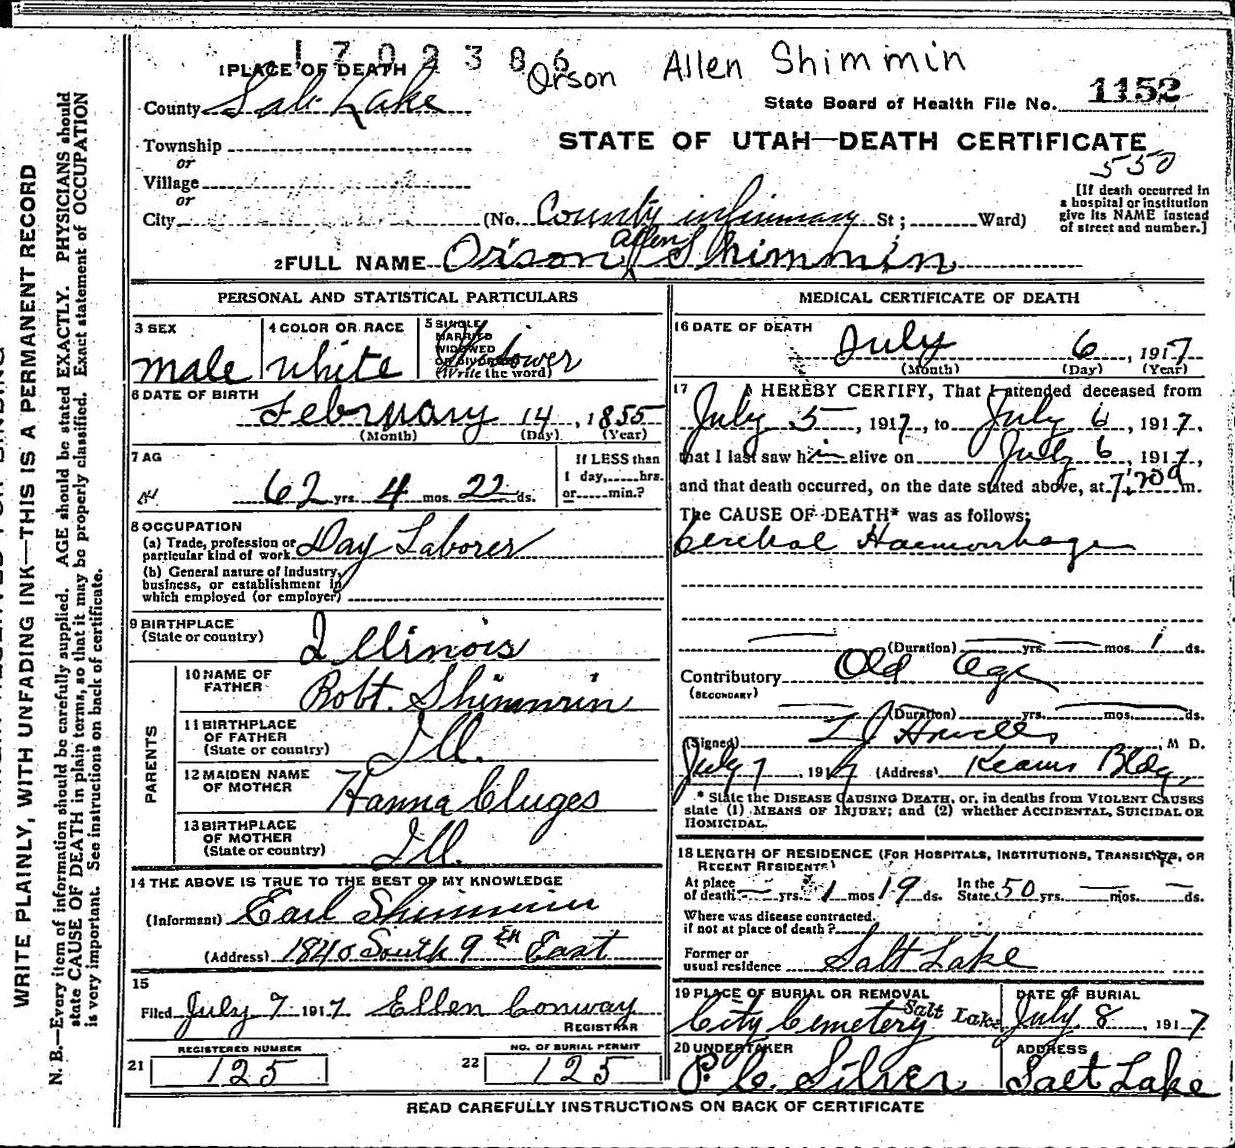 1702386
Orson Allen Shimmin
1 PLACE OF DEATH
County Salt Lake
State Board of Health File No. 1152
Township
or
STATE OF UTAH—DEATH CERTIFICATE
550
Village
or
City (No. County infirmary St; Ward)
[If death occurred in
a hospital or institution
give its NAME instead
of street and number.]
2 FULL NAME Orison Allen Shimmin
PERSONAL AND STATISTICAL PARTICULARS
3 SEX
male
4 COLOR OR RACE
white
5 SINGLE
MARRIED
WIDOWED
OR DIVORCED
(Write the word)
Widower
6 DATE OF BIRTH
February 14, 1855
(Month) (Day) (Year)
7 AG
62 yrs. 4 mos. 22 ds.
If LESS than
1 day,.....hrs.
or.....min.?
8 OCCUPATION
(a) Trade, profession or
particular kind of work Day Laborer
(b) General nature of industry,
business, or establishment in
which employed (or employer)
9 BIRTHPLACE
(State or country) Illinois
PARENTS
10 NAME OF
FATHER Robt. Shimmin
11 BIRTHPLACE
OF FATHER
(State or country) Ill.
12 MAIDEN NAME
OF MOTHER Hanna Cluges
13 BIRTHPLACE
OF MOTHER
(State or country) Ill.
14 THE ABOVE IS TRUE TO THE BEST OF MY KNOWLEDGE
(Informant) Earl Shimmin
(Address) 1840 South 9th East
15
Filed July 7 1917 Ellen Conway
REGISTRAR
21 REGISTERED NUMBER
125
22 NO. OF BURIAL PERMIT
125
MEDICAL CERTIFICATE OF DEATH
16 DATE OF DEATH
July 6, 1917
(Month) (Day) (Year)
17 I HEREBY CERTIFY, That I attended deceased from
July 5, 1917, to July 6, 1917,
that I last saw him alive on July 6, 1917,
and that death occurred, on the date stated above, at 7:20a m.
The CAUSE OF DEATH* was as follows:
Cerebral Haemorrhage
(Duration) yrs. mos. 1 ds.
Contributory Old Age
(SECONDARY)
(Duration) yrs. mos. ds.
(Signed) M D.
July 7, 1917 (Address) Kearns Bldg.
* State the DISEASE CAUSING DEATH, or, in deaths from VIOLENT CAUSES
state (1) MEANS OF INJURY; and (2) whether ACCIDENTAL, SUICIDAL OR
HOMICIDAL.
18 LENGTH OF RESIDENCE (FOR HOSPITALS, INSTITUTIONS, TRANSIENTS, OR
RECENT RESIDENTS)
At place
of death yrs. 1 mos 19 ds.
In the
State 50 yrs. mos. ds.
Where was disease contracted,
if not at place of death?
Former or
usual residence Salt Lake
19 PLACE OF BURIAL OR REMOVAL
City Cemetery Salt Lake
DATE OF BURIAL
July 8, 1917
20 UNDERTAKER
P. C. Silver
ADDRESS
Salt Lake
READ CAREFULLY INSTRUCTIONS ON BACK OF CERTIFICATE
WRITE PLAINLY, WITH UNFADING INK—THIS IS A PERMANENT RECORD
N. B.—Every item of information should be carefully supplied. AGE should be stated EXACTLY. PHYSICIANS should
state CAUSE OF DEATH in plain terms, so that it may be properly classified. Exact statement of OCCUPATION
is very important. See instructions on back of certificate.